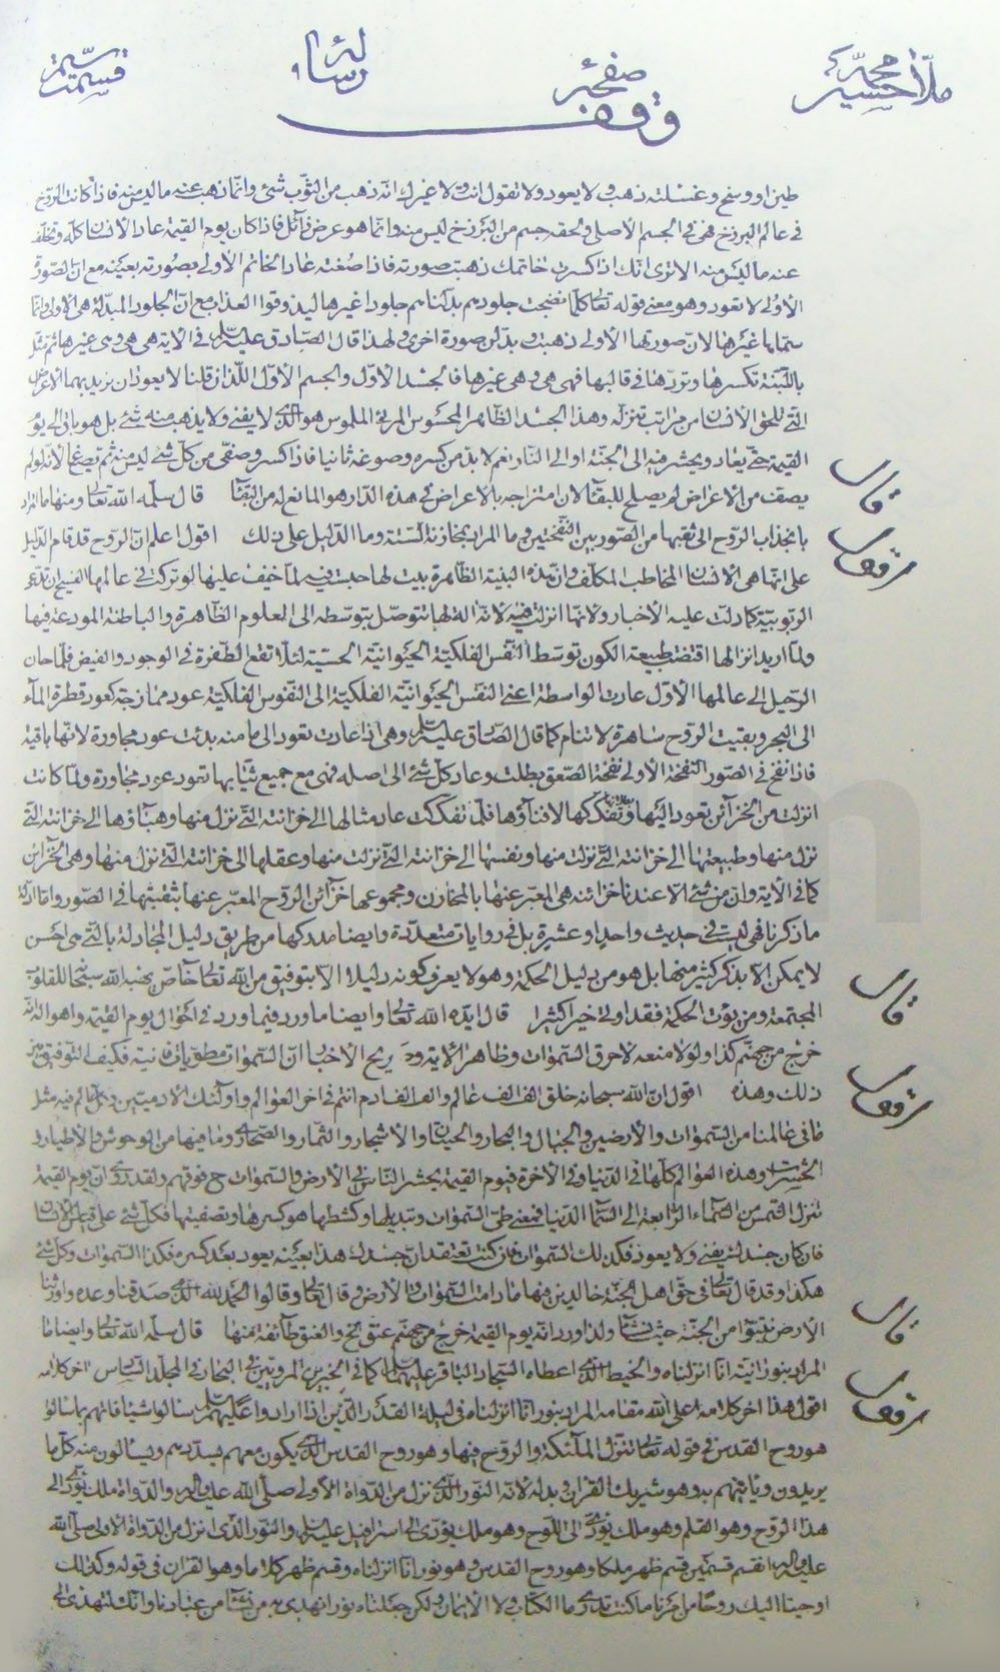 ملّا محمّد حسین
صفحهٔ
رسالهٔ
قسمت سیّم
وقف
طین او وسخ وغسلته ذهب ولا یعود ولا تقول انت ولا غیرك انّه ذهب من الثوب شیء وانّما ذهب عنه ما لیس منه فاذا کانت الروح
فی عالم البرزخ فهی فی الجسم الأصلی ولحقه جسم من البرزخ لیس منه وانّما هو عرض زائل فاذا کان یوم القیمة عاد الانسان کلّه وتخلّف
عنه ما لیس منه الا تری انّك اذا کسرت خاتمك ذهبت صورته فاذا صُغته عاد الخاتم الأولی بصورته بعینه مع انّ الصورة
الأولی لا تعود وهو معنی قوله تعالی کلّما نضجت جلودهم بدّلناهم جلودا غیرها لیذوقوا العذاب مع انّ الجلود المبدّلة هی الأولی وانّما
سمّاها غیرها لانّ صورتها الأولی ذهبت وبدّلت صورة اخری ولهذا قال الصادق علیه السلام فی الآیة هی هی وهی غیرها ثم مثّل
باللّبنة تکسرها وتردّها فی قالبها فهی هی وهی غیرها فالجسد الاوّل والجسم الاوّل اللّذان قلنا لا یعودان نرید بهما الاعراض
الّتی تلحق الانسان من مراتب تنزّله وهذا الجسد الظاهر المحسوس المرئی الملموس هو الّذی لا یفنی ولا یذهب منه شیء بل هو باق الی یوم
القیمة حتّی یعاد ویحشر فیه الی الجنّة او الی النار نعم لا بدّ من کسره وصوغه ثانیا فاذا کسر وصفّی من کلّ شیء لیس منه ثم یصاغ لانّه لو لم
قال
یصف من الاعراض لم یصلح للبقاء لانّ امتزاجه بالاعراض فی هذه الدار هو المانع له من البقاء قال سلّمه الله تعالی ومنها ما المراد
بانجذاب الروح الی ثقبها من الصور بین النفختین وما المراد بمخازنه الستة وما الدلیل علی ذلك اقول اعلم انّ الروح قد قام الدلیل
اقول
علی انّها هی الانسان المخاطب المکلّف وانّ هذه البنیة الظاهرة بیت لها حبست فیه لما خیف علیها لو ترکت فی عالمها الفسیح ان تدّعی
الربوبیّة کما دلّت علیه الأخبار ولانّها انزلت فیه لانّه آلة لها تتوصّل بتوسّطه الی العلوم الظاهرة والباطنة المودعة فیها
ولمّا ارید انزالها اقتضت طبیعة الکون توسّط النفس الفلکیّة الحیوانیّة الحسّیة لئلّا تقع الطفرة فی الوجود والفیض فلمّا حان
الرحیل الی عالمها الاوّل عادت الواسطة اعنی النفس الحیوانیّة الفلکیّة الی النفوس الفلکیّة عود ممازجة کعود قطرة الماء
الی البحر وبقیت الروح ساهرة لا تنام کما قال الصادق علیه السلام وهی اذا عادت تعود الی ما منه بدئت عود مجاورة لانّها باقیة
فاذا نفخ فی الصور النفخة الأولی نفخة الصعق بطلت وعاد کلّ شیء الی اصله فهی مع جمیع ثیابها تعود عود مجاورة ولمّا کانت
انزلت من الخزائن تعود الیها وتفکّکها لا فناؤها فلمّا تفکّکت عاد مثالها الی خزانته الّتی نزل منها وهباؤها الی خزانته الّتی
نزل منها وطبیعتها الی خزانته الّتی نزلت منها ونفسها الی خزانته الّتی نزلت منها وعقلها الی خزانته الّتی نزل منها وهی الخزائن
کما فی الآیة وان من شیء الّا عندنا خزائنه هی المعبّر عنها بالمخازن ومجموعها خزائن الروح المعبّر عنها بثقبتها فی الصور وامّا ادلّة
ما ذکرنا فهی لیست فی حدیث واحد او عشیرة بل فی روایات متعدّدة وایضا مدرکها من طریق دلیل المجادلة بالّتی هی احسن
لا یمکن الّا بذکر کثیر منها بل هو من دلیل الحکمة وهو لا یعرف کونه دلیلا الّا بتوفیق من الله تعالی خاصّ
قال
المجتمعة ومن یؤت الحکمة فقد اوتی خیرا کثیرا قال ایّده الله تعالی وایضا ما ورد فیما ورد فی احوال یوم القیمة واهواله انّه
خرج من جهنّم کذا ولولا منعه لاحرق السموات وظاهر الآیة وصریح الاخبار انّ السموات مطویّات فانیة فکیف التوفیق بین
ذلك وهذه اقول انّ الله سبحانه خلق الف الف عالم والف الف آدم انتم فی آخر العوالم واولئك الآدمیّین وکلّ عالم فیه مثل
اقول
ما فی عالمنا من السموات والأرضین والجبال والبحار والحیتان والاشجار والثمار والصحاری وما فیها من الوحوش والأطیار و
الحشرات وهذه العوالم کلّها فی الدنیا وفی الآخرة فیوم القیمة یحشر الناس فی الأرض والسموات ح فوقهم ولقد روی انّ یوم القیمة
تنزل الشمس من السماء الرابعة الی السماء الدنیا فمعنی طیّ السموات وتبدیلها وکشطها هو کسرها وتصفیتها فکلّ شیء علی قیاس الانسان
فان کان جسدك یفنی ولا یعود فکذلك السموات وان کنت تعتقد انّ جسدك هذا بعینه یعود بعد کسره فکذا السموات وکلّ شیء
هکذا وقد قال تعالی فی حقّ اهل الجنّة خالدین فیها ما دامت السموات والأرض وقال تعالی وقالوا الحمد لله الّذی صدقنا وعده واورثنا
قال
الأرض نتبوّأ من الجنّة حیث نشاء ولذا ورد انّه یوم القیمة خرج من جهنّم عنق الخ والعنق طائفة منها قال سلّمه الله تعالی وایضا ما
المراد بنورانیّة انّا انزلناه والخیط الّذی اعطاه السجّاد الباقر علیهما السلام کما فی الخبرین المرویّین فی البحار فی المجلّد السادس آخر کلامه
اقول
اقول هذا آخر کلامه اعلی الله مقامه المراد بنور انّا انزلناه فی لیلة القدر الّذین اذا ارادوا علیهم السلام سألوا شیئا فاتهم بما سألوا
هو روح القدس فی قوله تعالی تنزّل الملئکة والروح فیها وهو روح القدس الّذی یکون معهم یسدّدهم ویسألون منه کلّ ما
یریدون ویأتیهم به وهو شریك القرآن وبدله لانّه النور الّذی نزل من الدواة الأولی صلّی الله علیه وآله والدواة ملك یؤدّی الی
هذا الروح وهو القلم وهو ملك یؤدّی الی اللّوح وهو ملك یؤدّی الی اسرافیل علیه السلام والنور الّذی نزل من الدواة الأولی صلّی الله
علیه وآله انقسم قسمین قسم ظهر ملکا وهو روح القدس وهو نور انّا انزلناه وقسم ظهر کلاما وهو القرآن فی قوله وکذلك
اوحینا الیك روحا من امرنا ما کنت تدری ما الکتاب ولا الایمان ولکن جعلناه نورا نهدی به من نشاء من عبادنا وانّك لتهدی الی